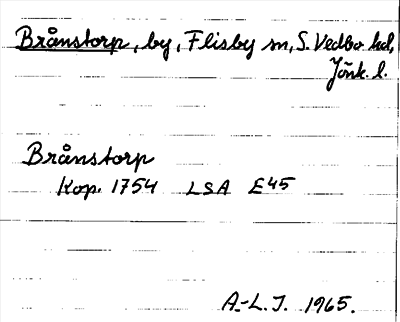 Brånstorp, by, Flisby sn, S. Vedbo hd,
Jönk. l.
Brånstorp
Kop. 1754 LSA E45
A.-L. J. 1965.